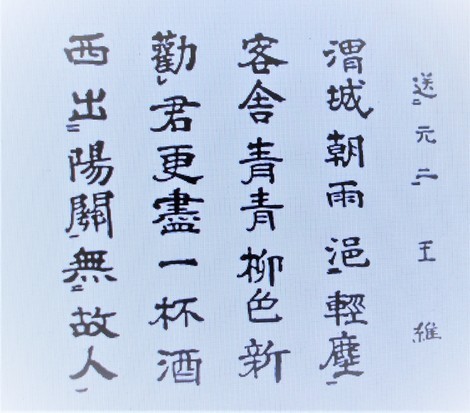 送元二 王維
渭城朝雨浥輕塵
客舎青青柳色新
勸君更盡一杯酒
西出陽關無故人